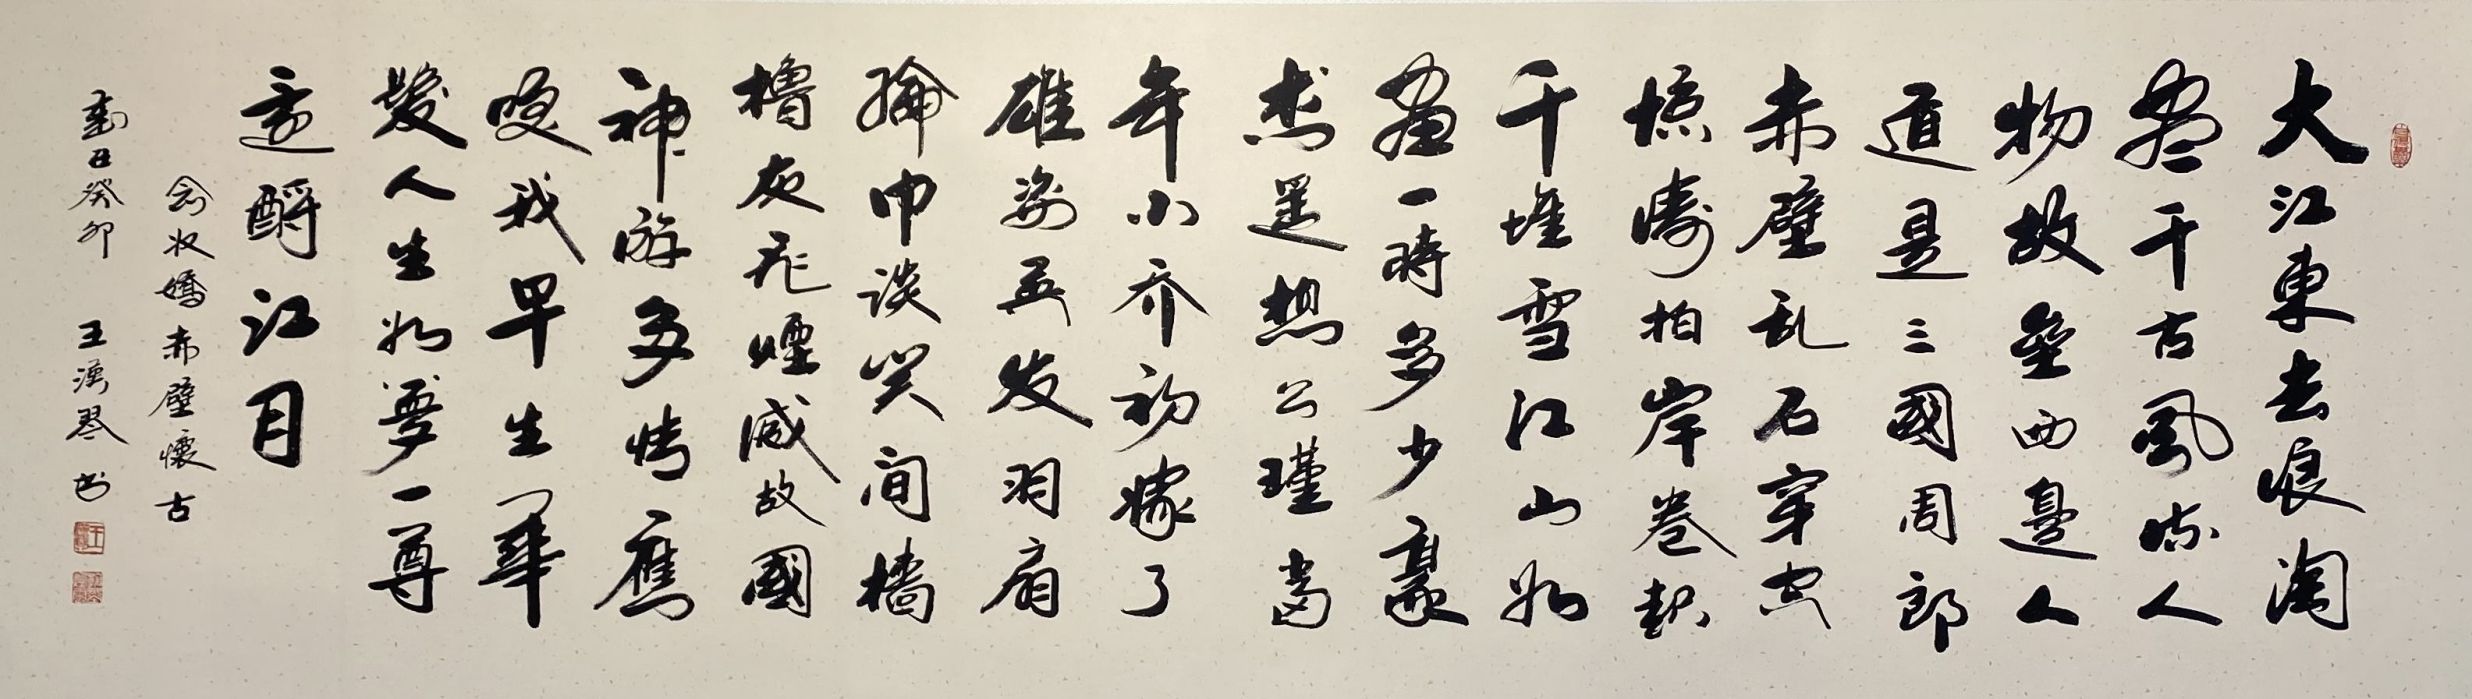 大江東去浪淘
盡千古風流人
物故壘西邊人
道是三國周郎
赤壁乱石穿空
惊濤拍岸卷起
千堆雪江山如
畫一時多少豪
杰遥想公瑾當
年小乔初嫁了
雄姿英发羽扇
綸巾談笑间檣
櫓灰飛煙滅故國
神游多情應
笑我早生華
髮人生如夢一尊
還酹江月
念奴嬌赤壁懷古
癸卯 王琴书